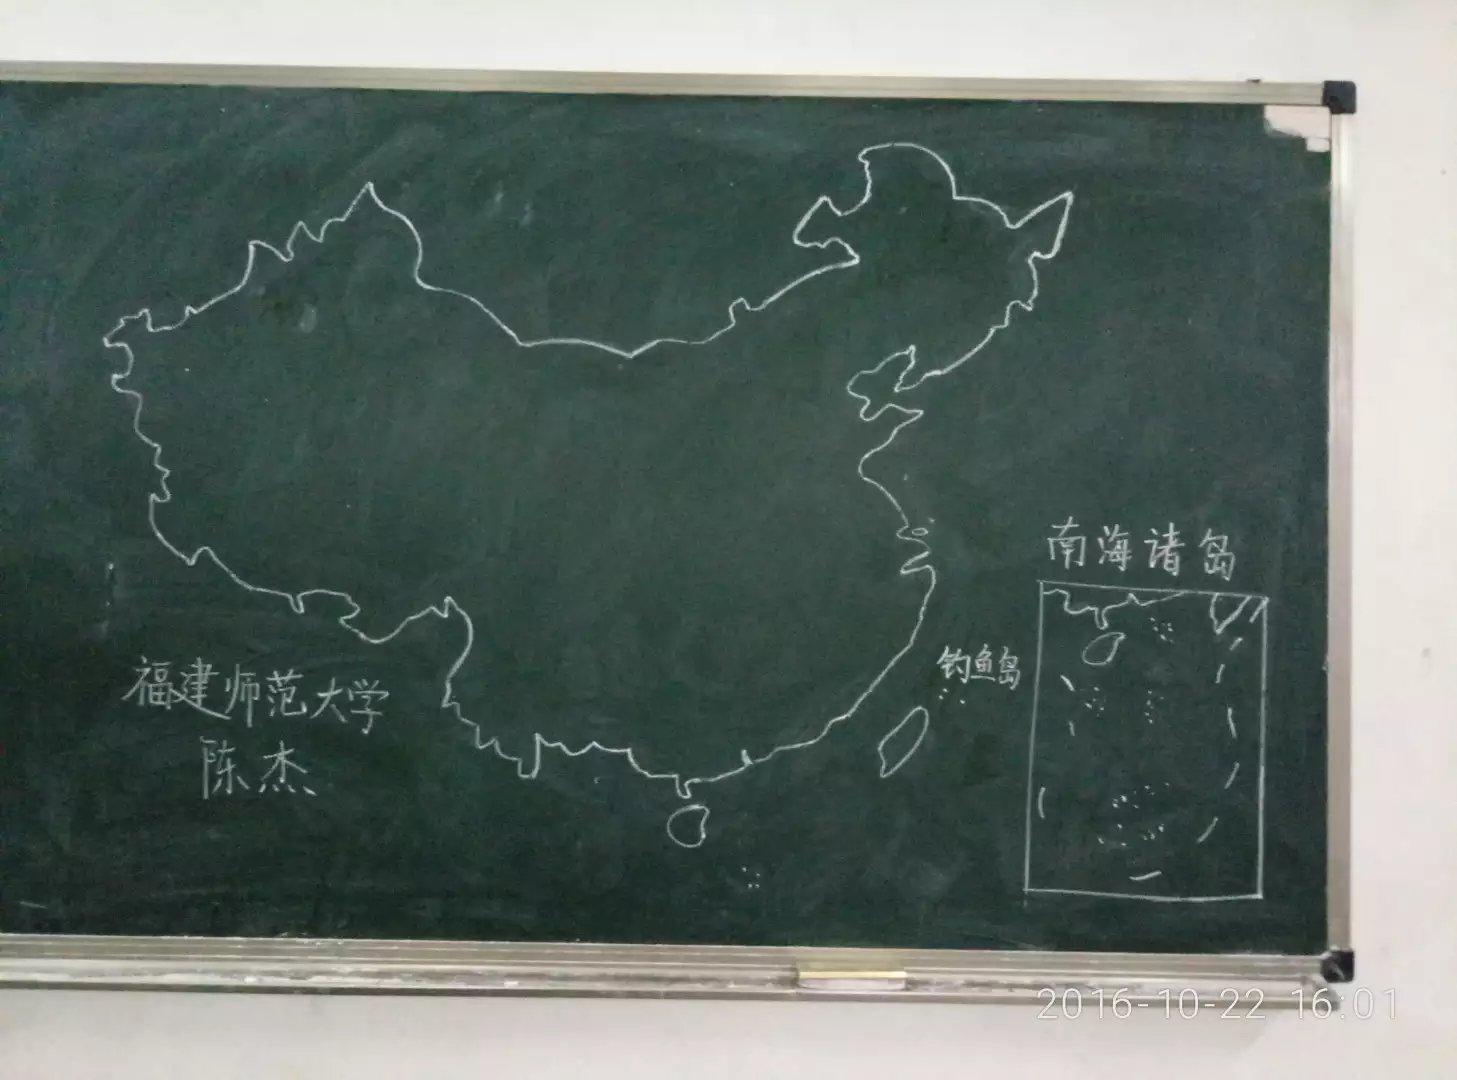 南海诸岛
钓鱼岛
福建师范大学
陈杰
2016-10-22 16:01